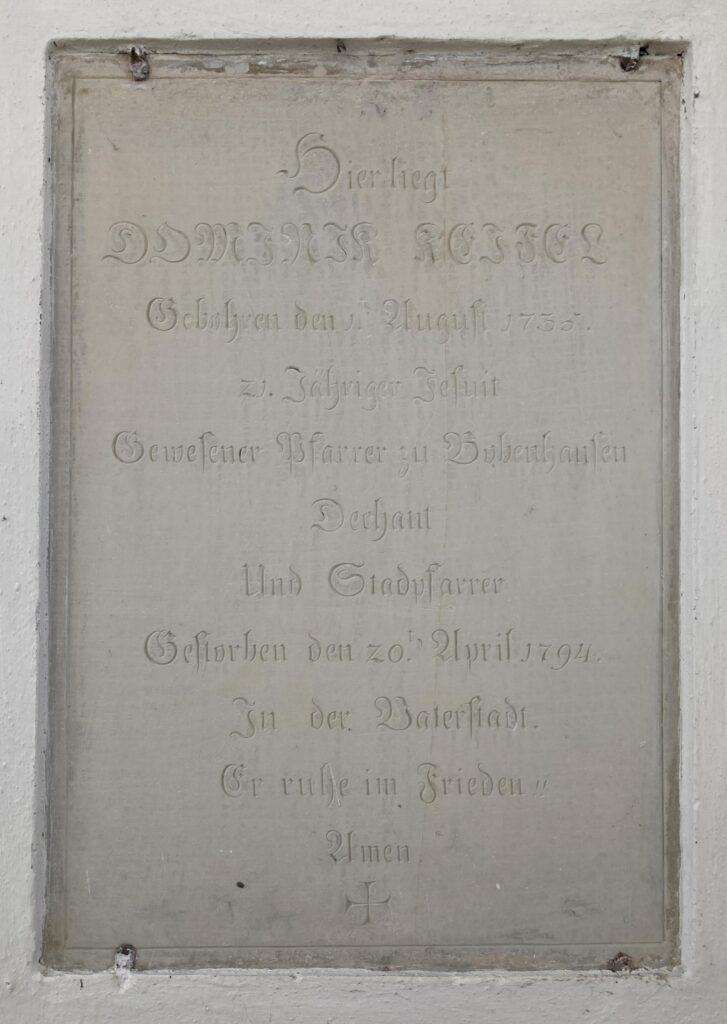 Hier liegt
DOMINIK KEIFEL
Gebohren den 1.ᵗ August 1735.
21. Jähriger Jesuit
Gewesener Pfarrer zu Bobenhausen
Dechant
Und Stadpfarrer
Gestorben den 20.ᵗ April 1794.
In der Vaterstadt.
Er ruhe im Frieden !!
Amen